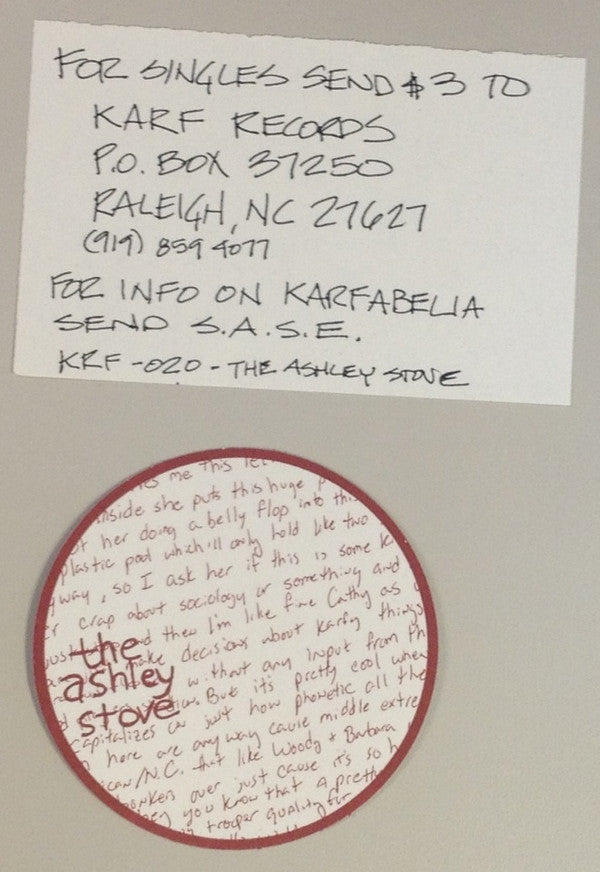 FOR SINGLES SEND $3 TO
KARF RECORDS
P.O. BOX 37250
RALEIGH, NC 27627
(919) 859 4077
FOR INFO ON KARFABELIA
SEND S.A.S.E.
KRF-020-THE ASHLEY STOVE
me this
inside she puts this huge
her doing a belly flop into this
plastic pool which'll only hold like two
way, so I ask her if this is some
crap about sociology or something and
just and then I'm like fine Cathy as
make decisions about Karfy things
without any input from
But it's pretty cool when
capitalizes on just how phonetic all the
here are anyway cause middle
/N.C. that like Woody + Barbara
over just cause it's so
you know that a pretty
trooper quality for
the
ashley
stove